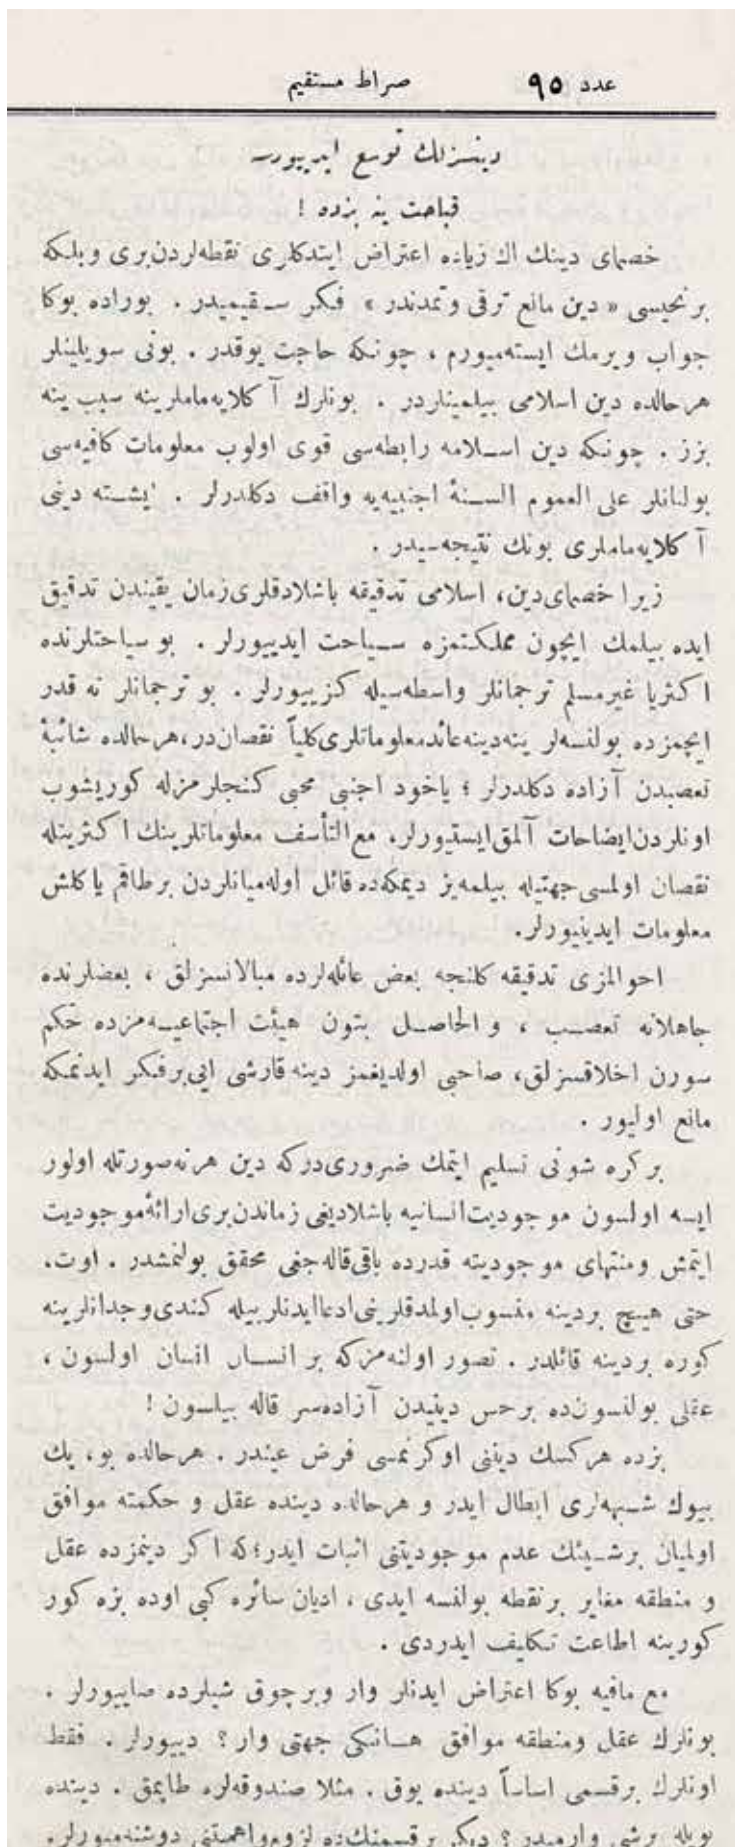 عدد ٩٥ صراط مستقيم
دينسزلك توسع ايدييور
قباحت ينه بزده !
خصماى دينك اك زياده اعتراض ايتدكلرى نقطه‌لردن‌برى وبلكه
برنجيسى « دين مانع ترقى وتمدندر » فكر سقيميدر . بوراده بوكا
جواب ويرمك ايسته‌ميورم ، چونكه حاجت يوقدر . بونى سويلينلر
هرحالده دين اسلامى بيلمينلردر . بونلرك آ كلايه‌مامالرينه سبب ينه
بزز . چونكه دين اسلامه رابطه‌سى قوى اولوب معلومات كافيه‌سى
بولنانلر على العموم السنهٔ اجنبيه‌يه واقف دكلدرلر . ايشته دينى
آ كلايه‌مامالرى بونك نتيجه‌سيدر .
زيرا خصماى‌دين، اسلامى تدقيقه باشلادقلرى‌زمان يقيندن تدقيق
ايده بيلمك ايچون مملكتمزه سياحت ايدييورلر . بو سياحتلرنده
ا كثريا غيرمسلم ترجمانلر واسطه‌سيله كزييورلر . بو ترجمانلر نه قدر
ايچمزده بولنسه‌لر ينه‌دينه‌عائدمعلوماتلرى‌كلياً نقصان‌در،هرحالده شائبهٔ
تعصبدن آزاده دكلدرلر ؛ ياخود اجنبى محبى كنجلرمزله كوريشوب
اونلردن‌ايضاحات آلمق‌ايستيورلر. مع‌التأسف معلوماتلرينك ا كثريتله
نقصان اولمسى‌جهتيله بيلمه‌يز ديمكه‌ده قائل اوله‌ميانلردن برطاقم ياكلش
معلومات ايدينيورلر.
احوالمزى تدقيقه كلنجه بعض عائله‌لرده مبالاتسزلق ، بعضلرنده
جاهلانه تعصب ، والحاصل بتون هيئت اجتماعيه‌مزده حكم
سورن اخلاقسزلق، صاحبى اولديغمز دينه قارشى ايى‌برفكر ايدنمكه
مانع اوليور .
بر كره شونى تسليم ايتمك ضرورى‌دركه دين هرنه‌صورتله اولور
ايسه اولسون موجوديت‌انسانيه باشلاديغى زماندن‌برى‌ارائهٔ‌موجوديت
ايتمش ومنتهاى موجوديته قدرده باقى‌قاله‌جغى محقق بولنمشدر . اوت،
حتى هيچ بردينه منسوب‌اولمدقلرينى‌ادعاايدنلربيله كندى‌وجدانلرينه
كوره بردينه قائلدر . تصور اولنه‌مزكه بر انسان انسان اولسون ،
عقلى بولنسون‌ده برحس دينيدن آزاده‌سر قاله بيلسون !
بزده هركسك دينى اوكرنمسى فرض عيندر . هرحالده بو، پك
بيوك شبهه‌لرى ابطال ايدر و هرحالده دينده عقل و حكمته موافق
اولميان برشيئك عدم موجوديتنى اثبات ايدر؛كه ا كر دينمزده عقل
و منطقه مغاير برنقطه بولنسه ايدى ، اديان سائره كبى اوده بزه كور
كورينه اطاعت تكليف ايدردى .
مع مافيه بوكا اعتراض ايدنلر وار وبرچوق شيلرده صاييورلر .
بونلرك عقل ومنطقه موافق هانكى جهتى وار ؟ دييورلر . فقط
اونلرك برقسمى اساساً دينده يوق . مثلا صندوقه‌لره طاپمق . دينده
بويله برشى وارميدر ؟ ديكر برقسمنك‌ده لزوم‌واهميتنى دوشنه‌ميورلر.